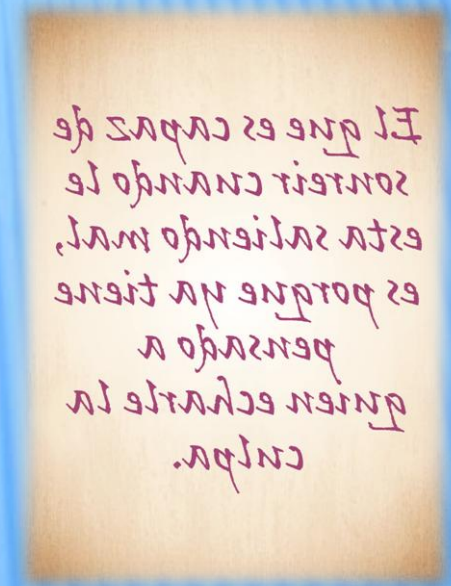 El que es capaz de
sonreir cuando le
esta saliendo mal,
es porque ya tiene
pensado a
quien echarle la
culpa.